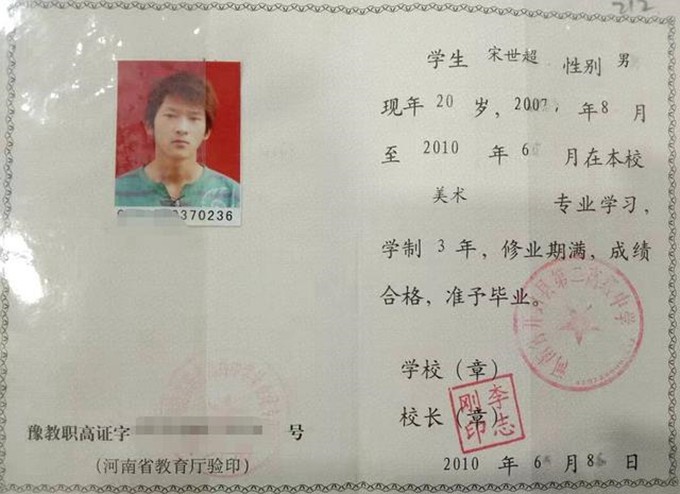 212
学生 宋世超 性别 男
现年 20 岁，2007 年 8 月
至 2010 年 6 月在本校
美术 专业学习，
学制 3 年，修业期满，成绩
合格，准予毕业。
370236
学校（章）
校长（章）
李志刚印
豫教职高证字 号
（河南省教育厅验印）
2010 年 6 月 8